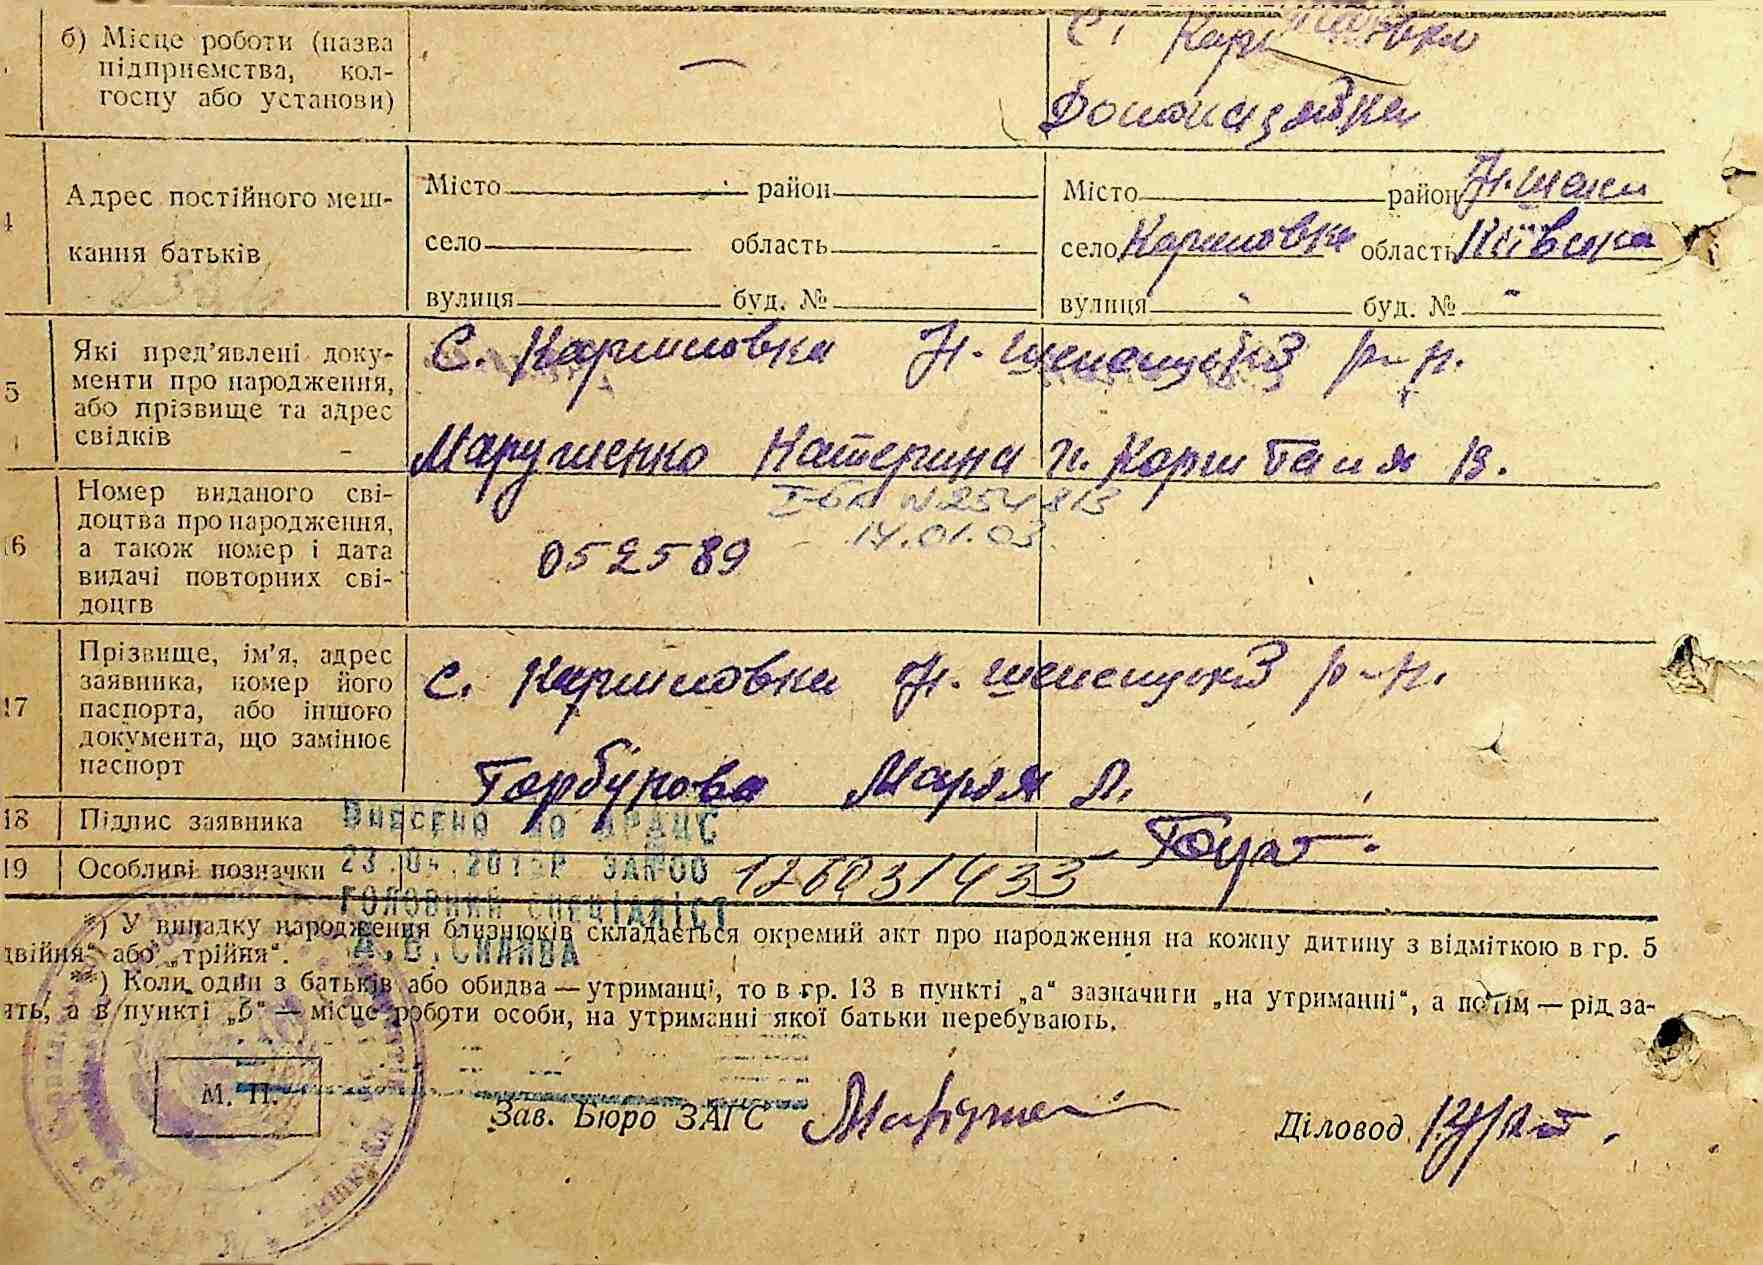 б) Місце роботи (назва
підприємства, кол-
госпу або установи)
—
с.
Адрес постійного меш-
кання батьків
Місто район
село область
вулиця буд. №
Місто район
село Каришовка область Київска
вулиця буд. №
Які пред’явлені доку-
менти про народження,
або прізвище та адрес
свідків
с. Каришовка Н. р-н.
Марушенко Катерина
Номер виданого сві-
доцтва про народження,
а також номер і дата
видачі повторних сві-
доцтв
І-бк №254813
14.01.03
052589
17
Прізвище, ім’я, адрес
заявника, номер його
паспорта, або іншого
документа, що замінює
паспорт
с. Каришовка Н. р-н.
Горбунова Марія
18 Підпис заявника
19 Особливі позначки
Внесено до ДРАЦС
23.04.201 р. за №00 126031433
головний спеціаліст
*) У випадку народження близнюків складається окремий акт про народження на кожну дитину з відміткою в гр. 5
двійня“ або „трійня“.
**) Коли один з батьків або обидва — утриманці, то в гр. 13 в пункті „а“ зазначити „на утриманні“, а потім — рід за-
ять, а в пункті „б“ — місце роботи особи, на утриманні якої батьки перебувають.
М. П.
Зав. Бюро ЗАГС
Діловод